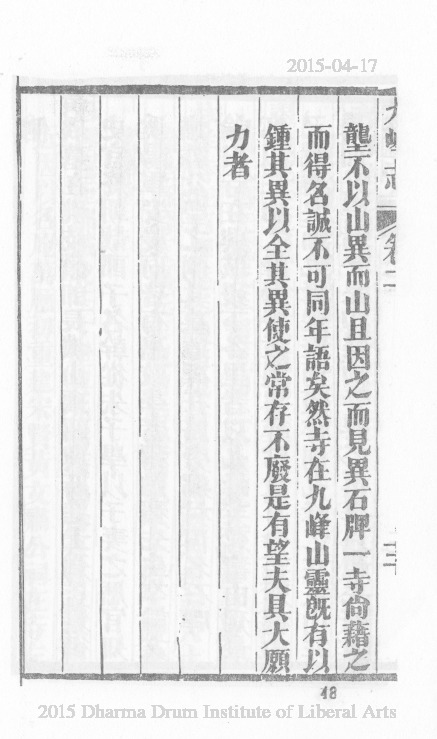 2015-04-17
壟不以山異而山且因之而見異石牌一寺尙藉之
而得名誠不可同年語矣然寺在九峰山靈旣有以
鍾其異以全其異使之常存不廢是有望夫具大願
力者
志 卷二
48
2015 Dharma Drum Institute of Liberal Arts